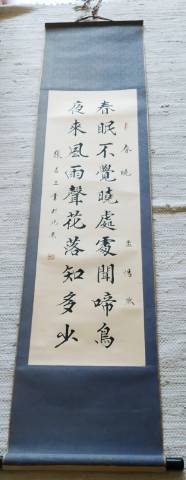 春曉 孟浩然
春眠不覺曉處處聞啼鳥
夜來風雨聲花落知多少